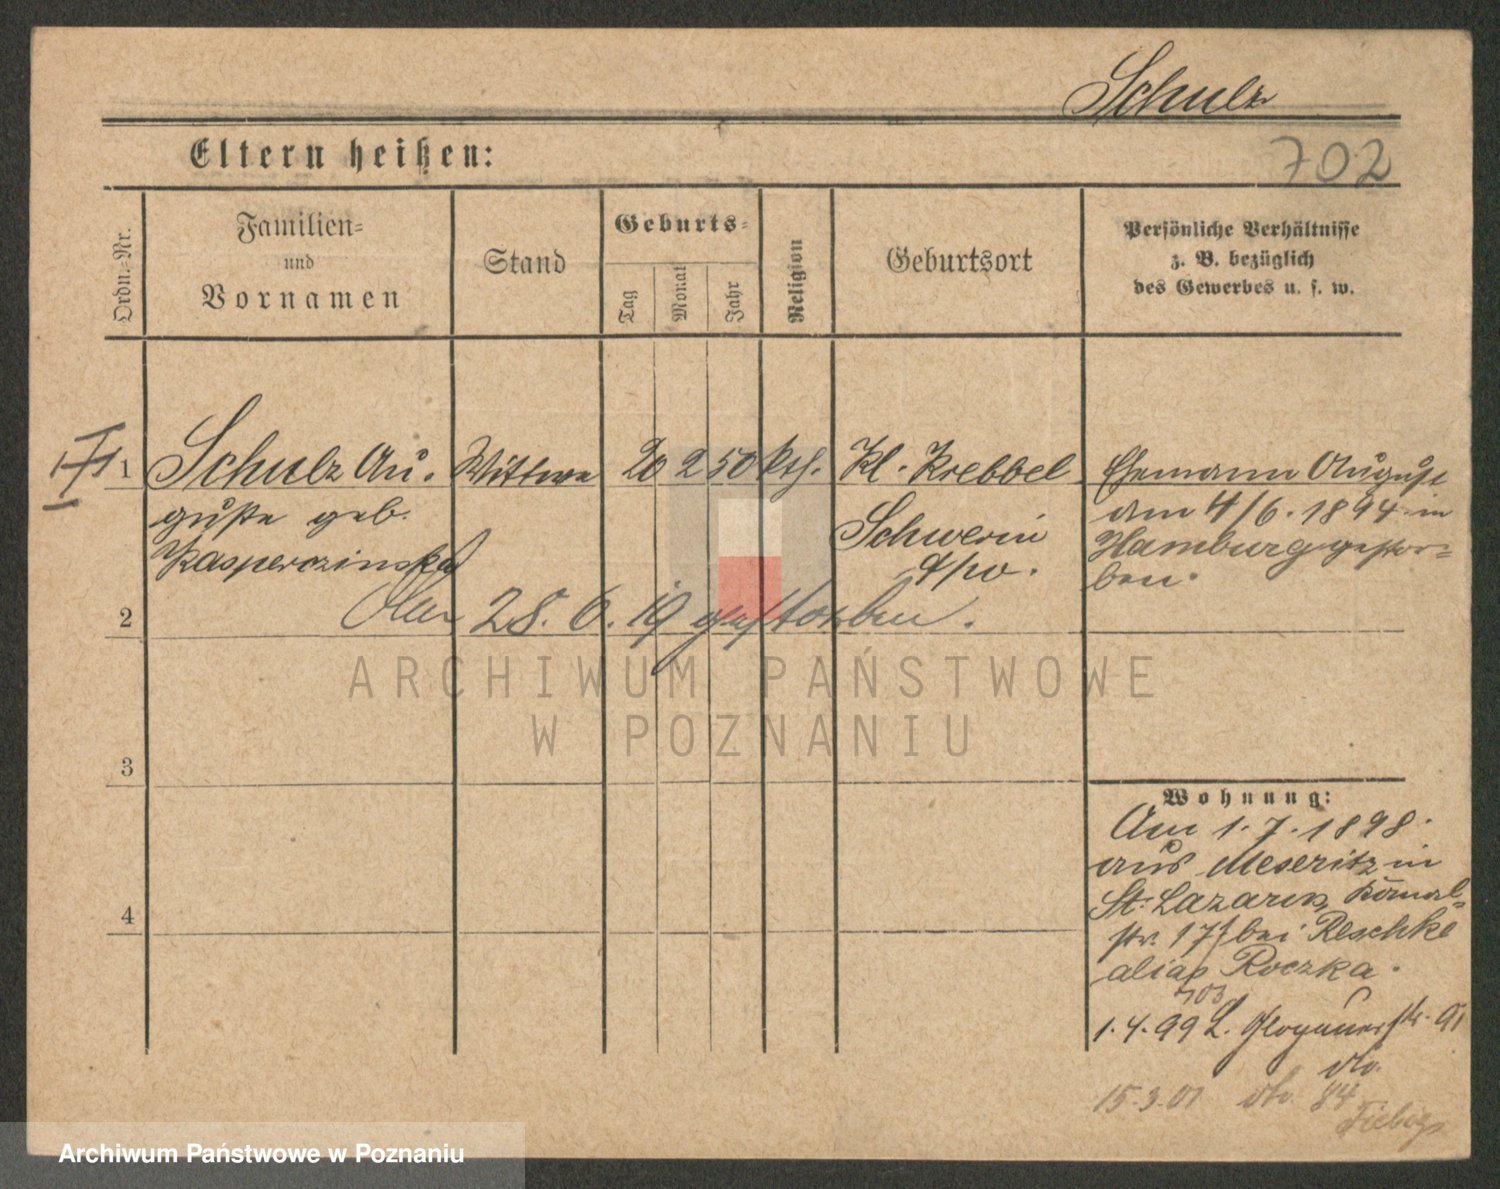 Schulz
702
Eltern heißen:
Ordn.-Nr.
Familien-
und
Vornamen
Stand
Geburts-
Tag
Monat
Jahr
Religion
Geburtsort
Persönliche Verhältnisse
z. B. bezüglich
des Gewerbes u. s. w.
1 Schulz Au- Wittwe 20 2 50 kth. Kl. Krebbel Ehemann August
guste geb. Schwerin am 4/6. 1894 in
Kasperczinska a/w. Hamburg gestor-
ben.
2 Am 28. 6. 19 gestorben.
ARCHIWUM PAŃSTWOWE
W POZNANIU
3
Wohnung:
Am 1. 7. 1898.
aus Meseritz in
St. Lazarus, Kanal-
4
str. 17 bei Reschke
alias Roczka.
703
1. 4. 99 L. Glogauerstr. 91
do.
15.3.01 do. 84
Fiebig
Archiwum Państwowe w Poznaniu